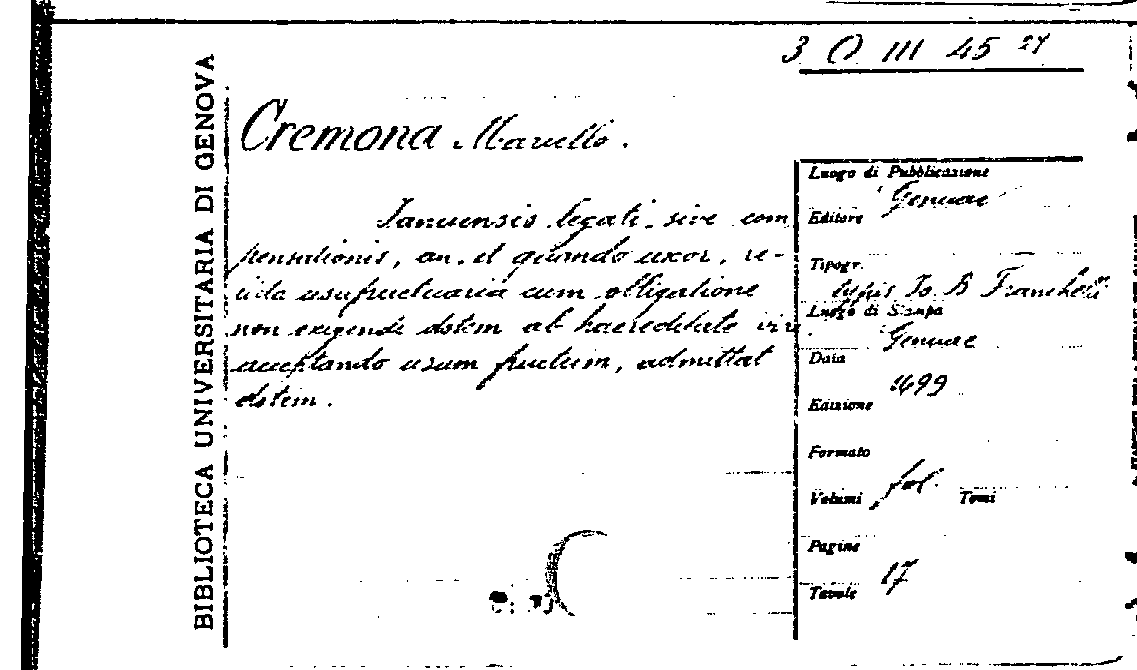 BIBLIOTECA UNIVERSITARIA DI GENOVA
3 O III 45 27
Cremona Marcello.
Januensis legati sive com
pensationis, an et quando uxor, re-
licta usufructuaria cum obligatione
non exigendi dotem ab haereditate viri
acceptando usum fructum, admittat
dotem.
Luogo di Pubblicazione
Genuae
Editore
Tipogr.
typis Jo. B. Franchelli
Luogo di Stampa
Genuae
Data
1699
Edizione
Formato
fol.
Volumi Tomi
Pagine
17
Tavole